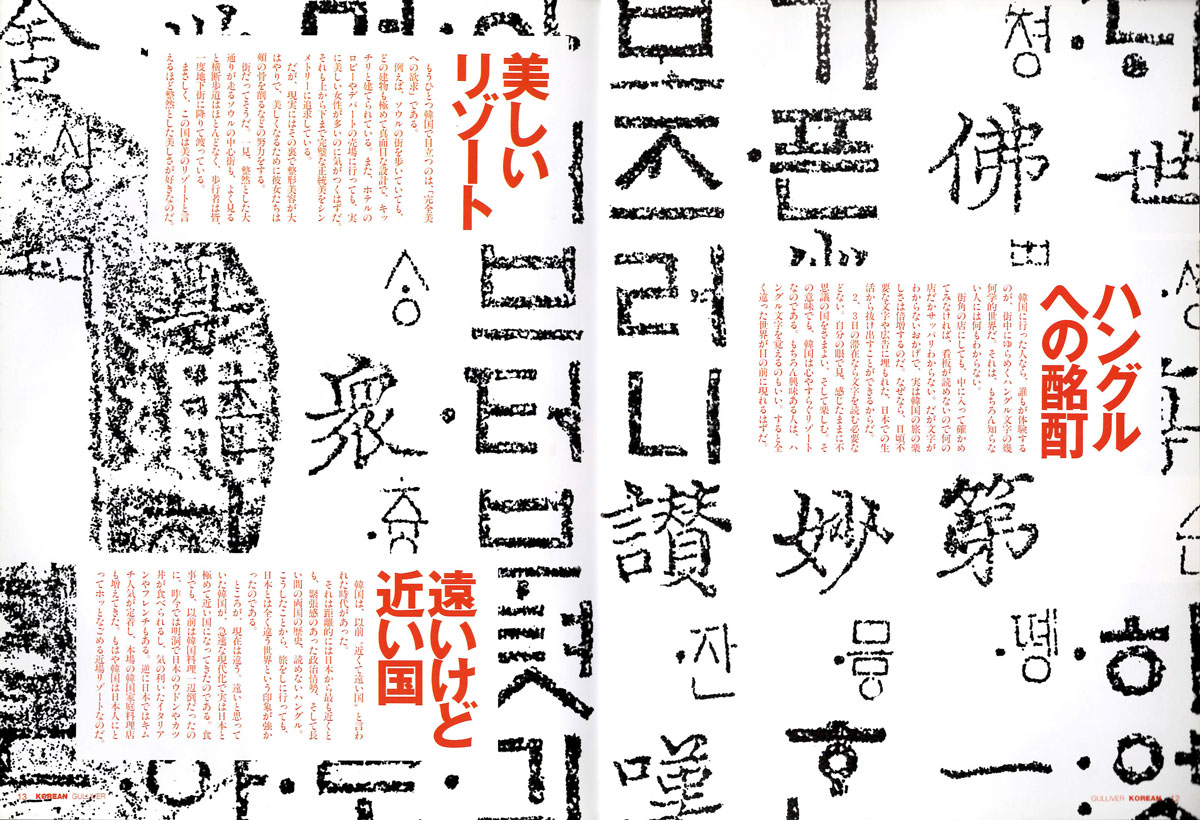 ハングル
への酩酊
韓国に行った人なら、誰もが体験する
のが、街中にゆらめくハングル文字の幾
何学的世界だ。それは、もちろん知らな
い人には何もわからない。
街角の店にしても、中に入って確かめ
てみなければ、看板が読めないので何の
店だかサッパリわからない。だが文字が
わからないおかげで、実は韓国の旅の楽
しさは倍増するのだ。なぜなら、日頃不
要な文字や広告に埋もれた、日本での生
活から抜け出すことができるからだ。
2、3日の滞在なら文字を読む必要な
どない。自分の眼で見、感じたままに不
思議の国をさまよい、そして楽しむ。そ
の意味でも、韓国は心やすらぐリゾート
なのである。もちろん興味ある人は、ハ
ングル文字を覚えるのもいい。すると全
く違った世界が目の前に現れるはずだ。
美しい
リゾート
もうひとつ韓国で目立つのは、「完全美
への欲求」である。
例えば、ソウルの街を歩いていても、
どの建物も極めて真面目な設計で、キッ
チリと建てられている。また、ホテルの
ロビーやデパートの売場に行っても、実
に美しい女性が多いのに気がつくはずだ。
それも上から下まで完璧な正統美をシン
メトリーに追求している。
だが、現実にはその裏で整形美容が大
はやりで、美しくなるために彼女たちは
頬の骨を削るなどの努力をする。
街だってそうだ。一見、整然とした大
通りが走るソウルの中心街も、よく見る
と横断歩道はほとんどなく、歩行者は皆、
一度地下街に降りて渡っている。
まさしく、この国は美のリゾートと言
えるほど整然とした美しさが好きなのだ。
遠いけど
近い国
韓国は、以前〝近くて遠い国〟と言わ
れた時代があった。
それは距離的には日本から最も近くと
も、緊張感のあった政治情勢、そして長
い間の両国の歴史、読めないハングル。
こうしたことから、旅をしに行っても、
日本とは全く違う世界という印象が強か
ったのである。
ところが、現在は違う。遠いと思って
いた韓国が、急速な現代化で実は日本と
極めて近い国になってきたのである。食
事でも、以前は韓国料理一辺倒だったの
に、昨今では明洞で日本のウドンやカツ
丼が食べられるし、気の利いたイタリア
ンやフレンチもある。逆に日本ではキム
チ人気が定着し、本場の韓国家庭料理店
も増えてきた。もはや韓国は日本人にと
ってホッとなごめる近場リゾートなのだ。
世
佛
第
妙
讃
嘆
衆
舍
GULLIVER KOREAN 12
13 KOREAN GULLIVER